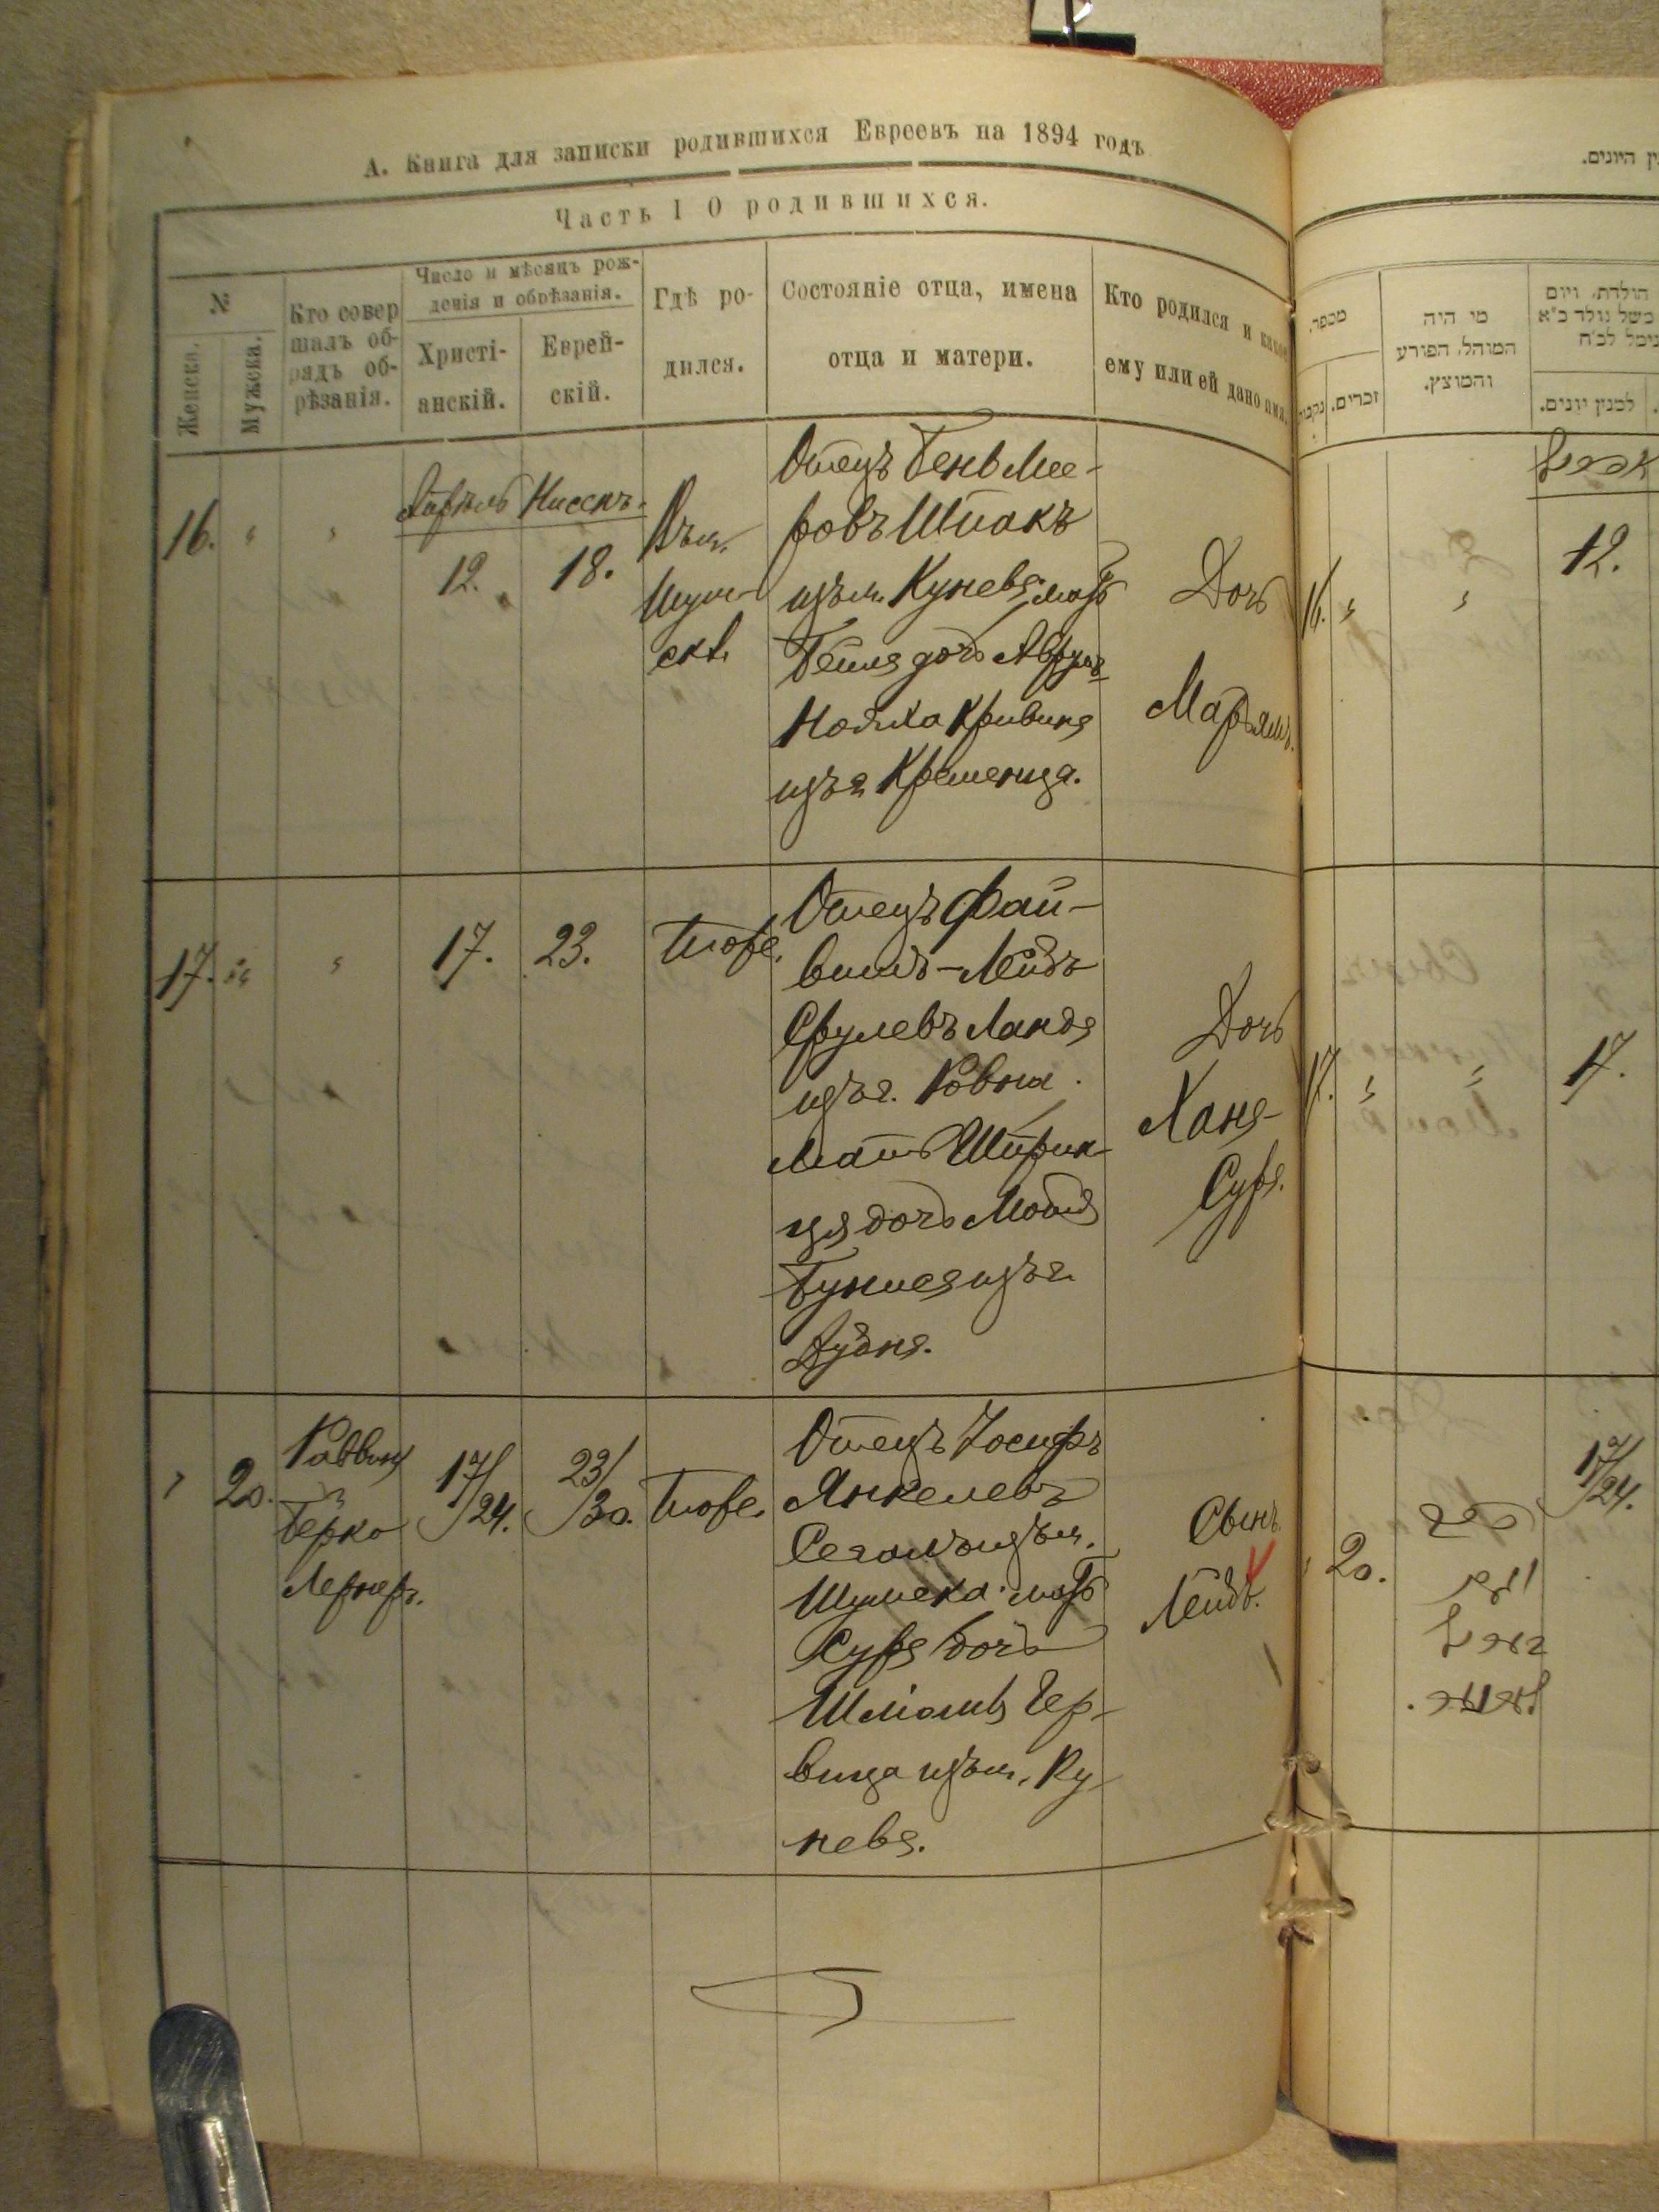 А. Книга для записки родившихся Евреевъ на 1894 годъ
Часть I О родившихся.
№
Женска.
Мужска.
Кто совер
шалъ об-
рядъ об-
рѣзанія.
Число и мѣсяцъ рож-
денія и обрѣзанія.
Христі-
анскій.
Еврей-
скій.
Гдѣ ро-
дился.
Состояніе отца, имена
отца и матери.
Кто родился и какое
ему или ей дано имя.
16.
Апрѣль
12.
Ниссенъ.
18.
Въ м.
Шум-
скѣ
Отецъ Бень Мее-
ровъ Шпакъ
изъ м. Кунева, мать
Бейля дочь Аврумъ
Кривина
изъ г. Кременца.
Дочь
Марьямъ.
17.
17.
23.
Тоже.
Отецъ Фай-
вишъ-Лейбъ
Срулевъ Ланда
изъ г. Ровна
Мать Шприн-
ца дочь
изъ г.
Дубна.
Дочь
Хана-
Сура.
20.
Раввинъ
Берко
Лернеръ.
17/24.
23/30.
Тоже.
Отецъ Іосифъ
Янкелевъ
изъ м.
Шумска мать
Сура дочь
Шліомы Гер-
вица изъ м. Ку-
нева.
Сынъ
Лейбъ.
ין היונים.
מספר.
זכרים.
מי היה
המוהל, הפורע
והמוצץ.
הולדת, ויום
למנין יונים.
16.
12.
17.
17.
20.
17/24.